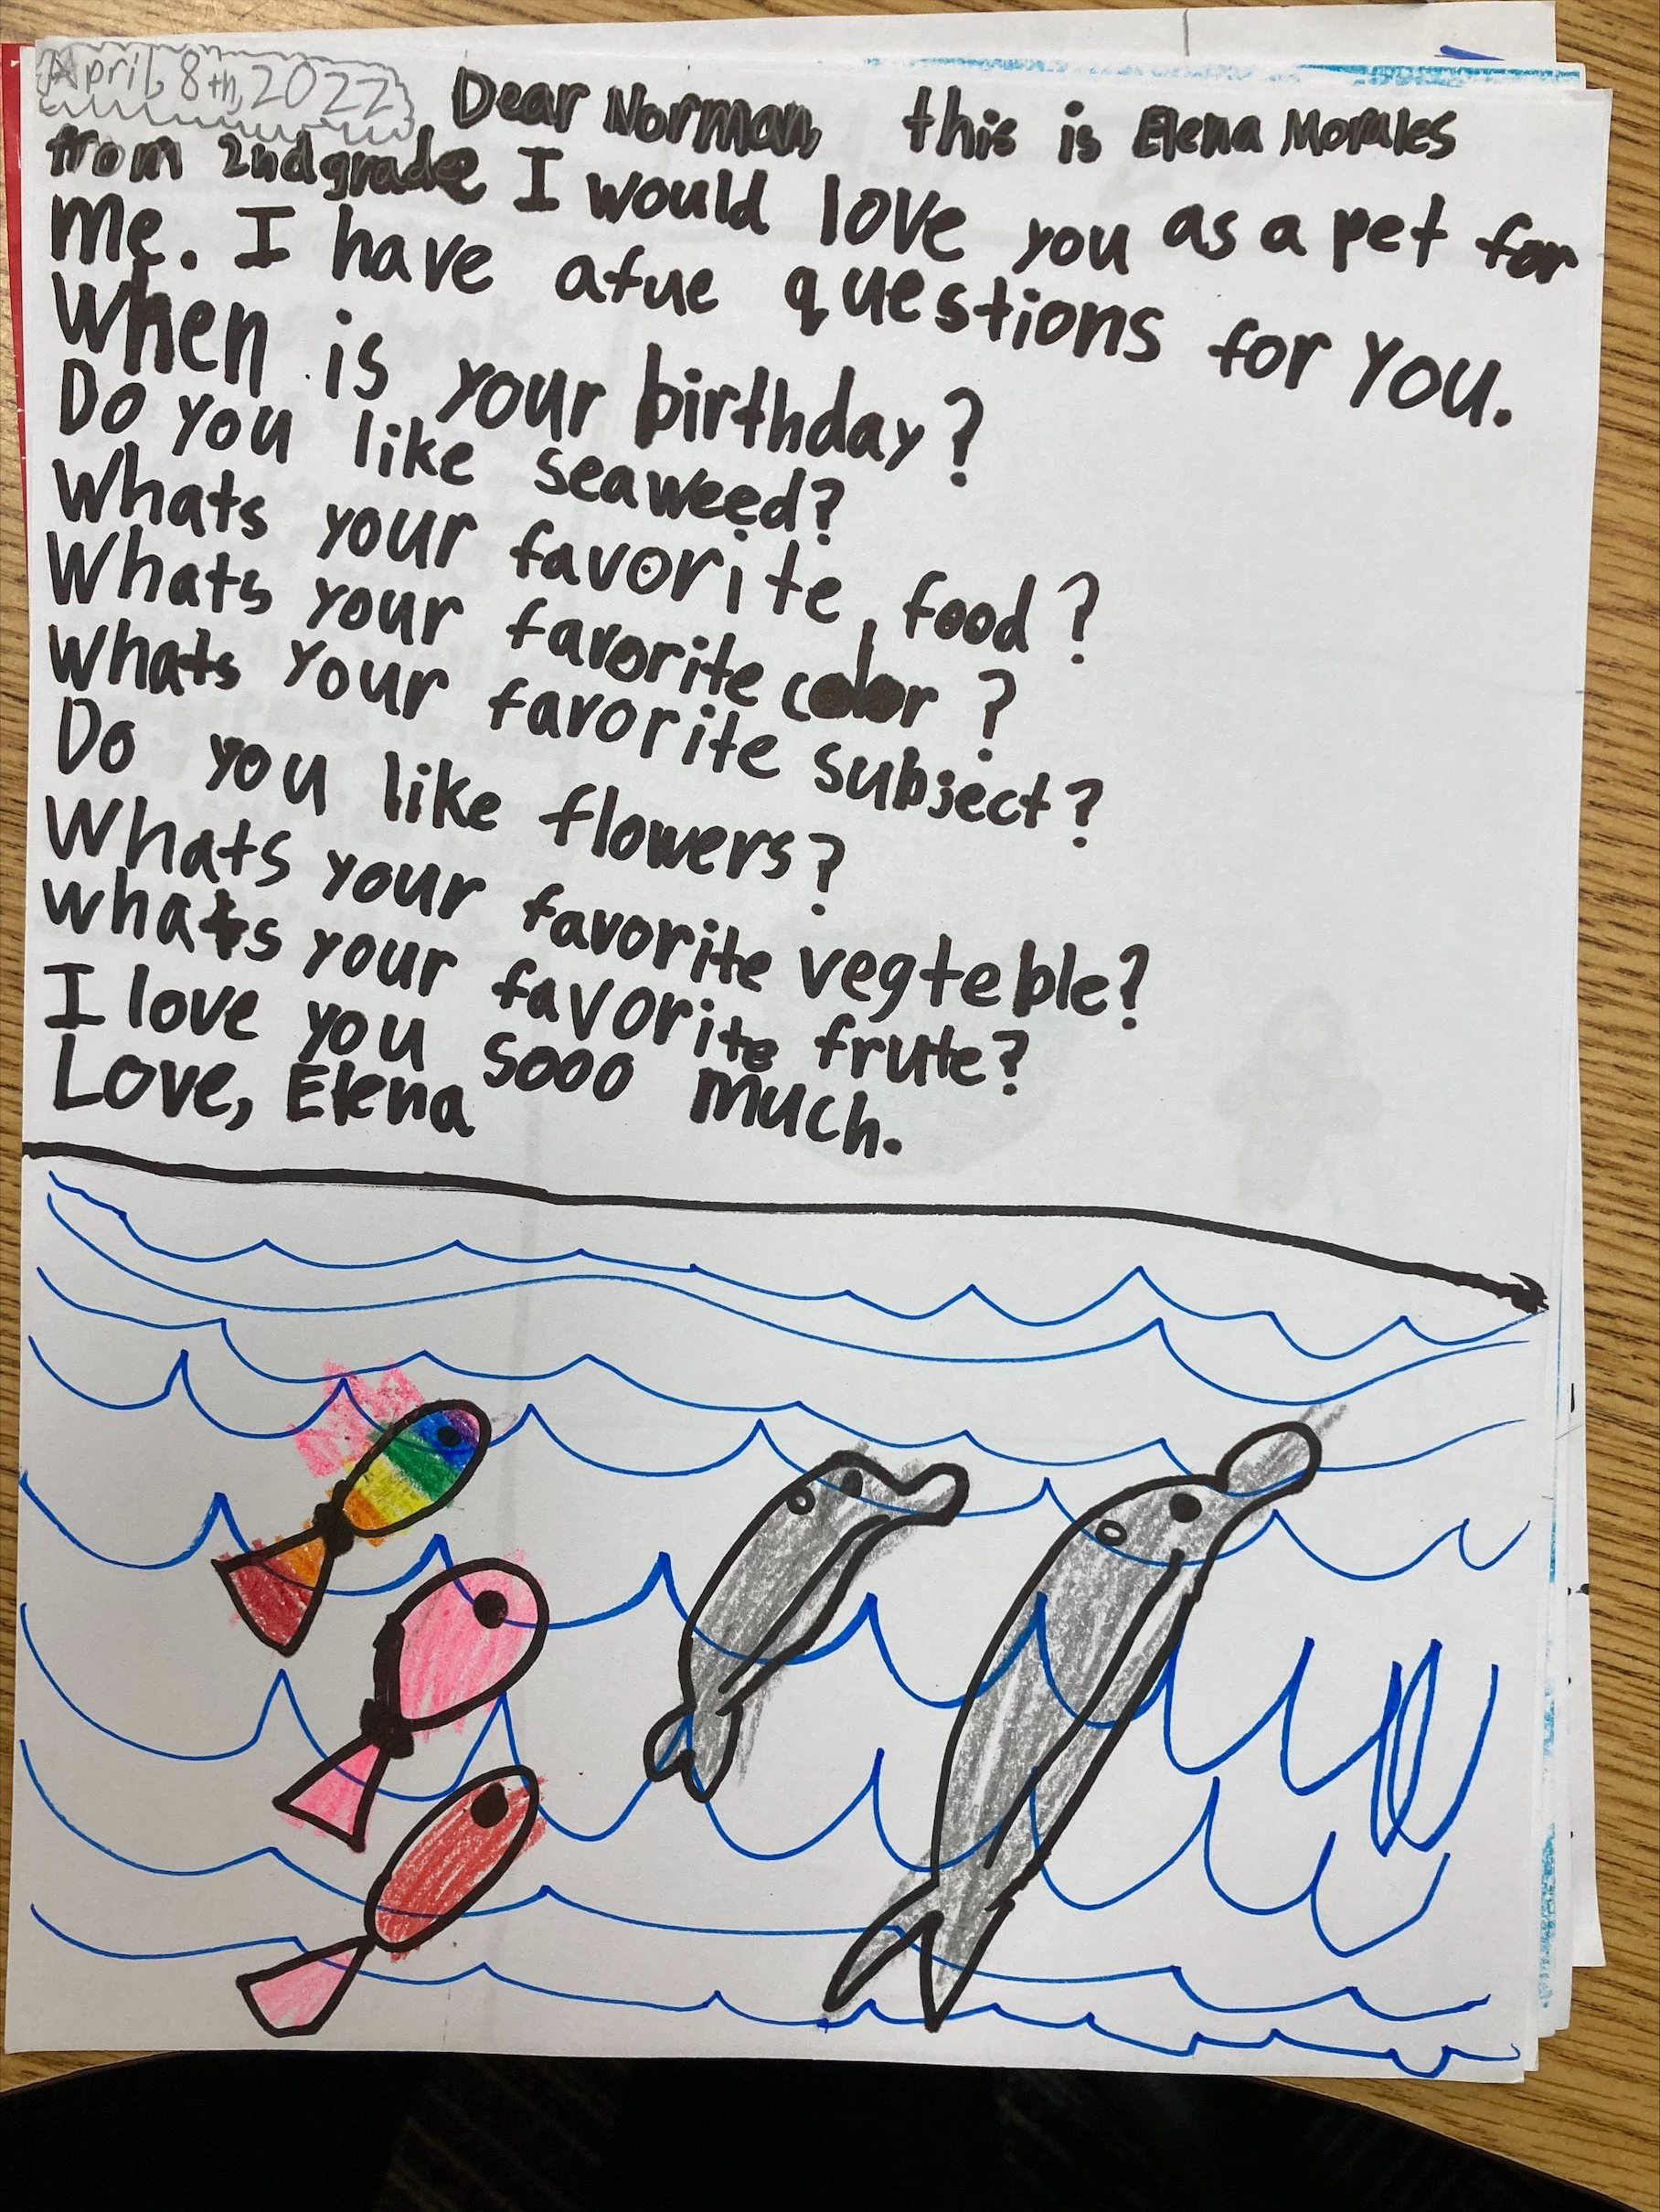 April, 8th, 2022
Dear Norman, this is Elena Morales
from 2nd grade I would love you as a pet for
me. I have afue questions for you.
When is your birthday?
Do you like seaweed?
Whats your favorite food?
Whats your favorite color?
Whats your favorite subject?
Do you like flowers?
Whats your favorite vegteble?
Whats your favorite frute?
I love you sooo much.
Love, Elena